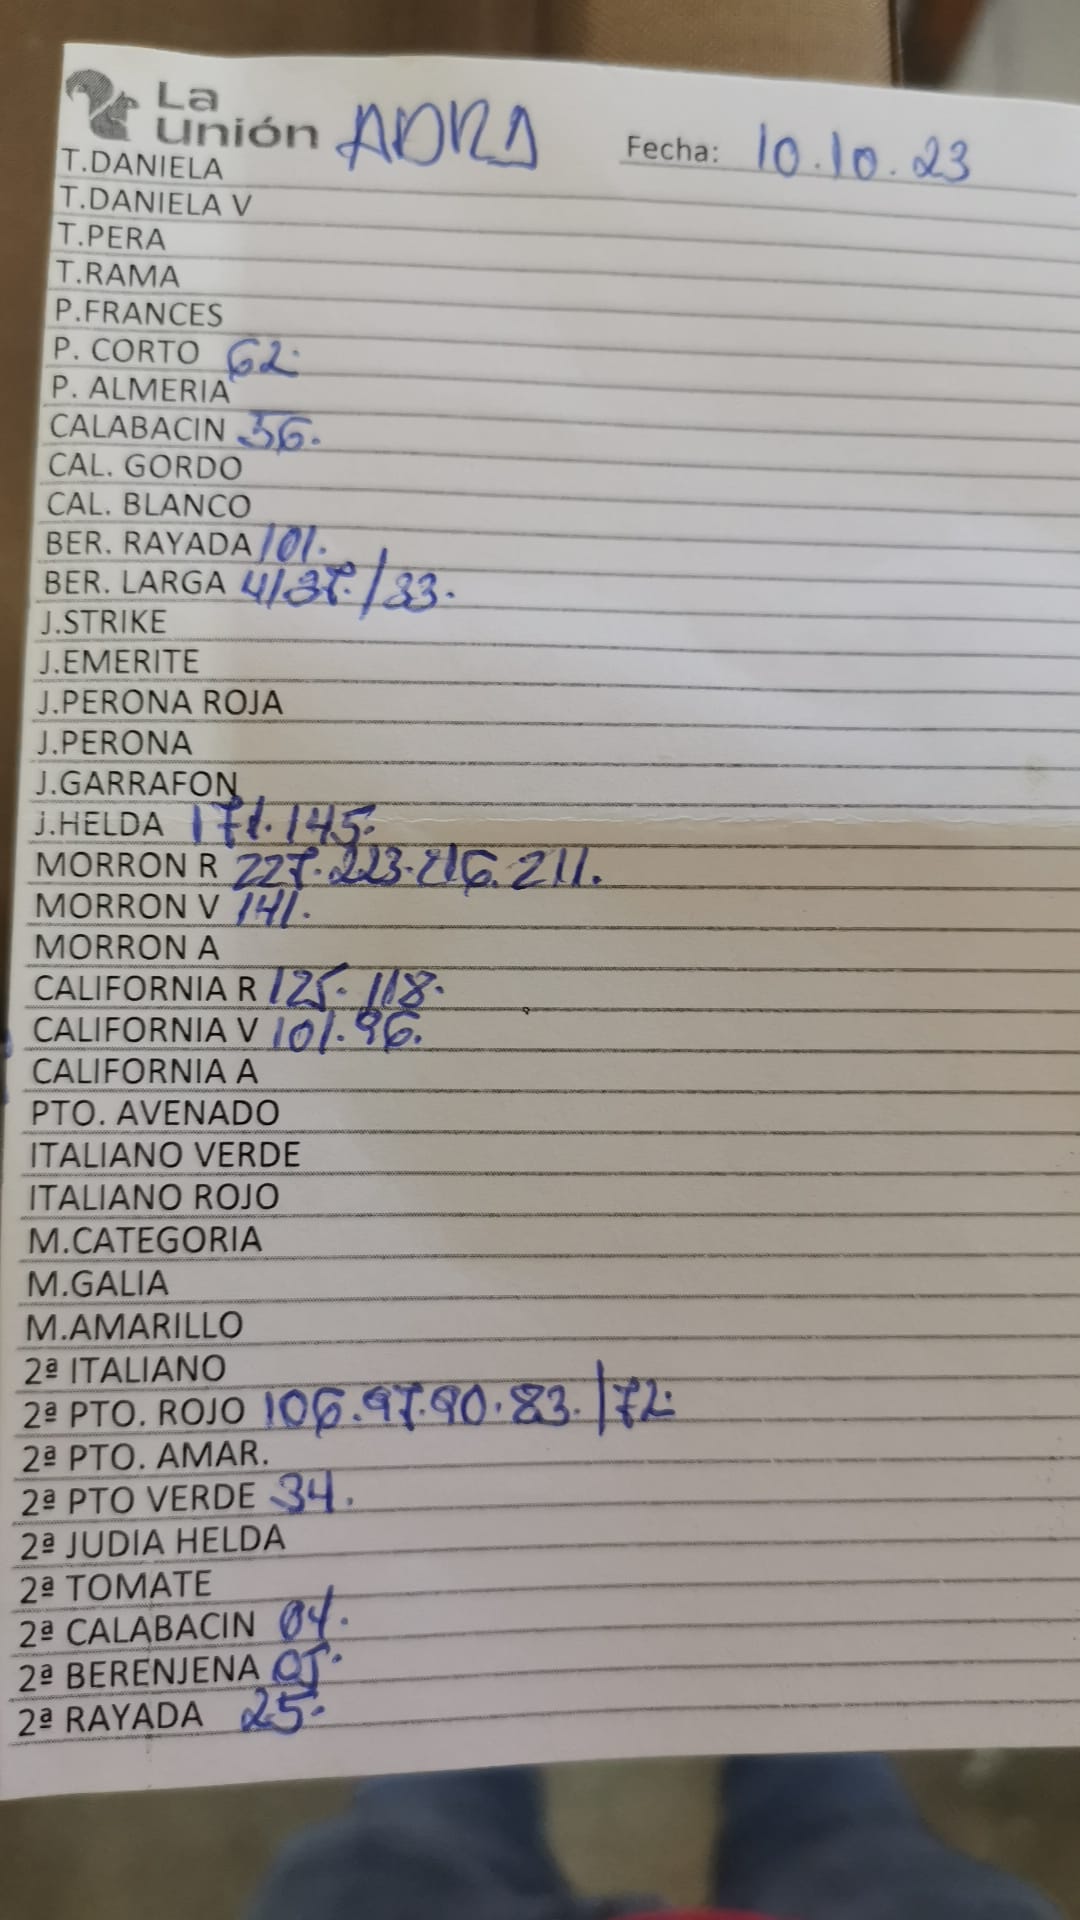 La
unión ADRA Fecha: 10.10.23
T.DANIELA
T.DANIELA V
T.PERA
T.RAMA
P.FRANCES
P. CORTO 62.
P. ALMERIA
CALABACIN 56.
CAL. GORDO
CAL. BLANCO
BER. RAYADA 101.
BER. LARGA 41/37./33.
J.STRIKE
J.EMERITE
J.PERONA ROJA
J.PERONA
J.GARRAFON
J.HELDA 171.145.
MORRON R 227.223.216.211.
MORRON V 141.
MORRON A
CALIFORNIA R 125.118.
CALIFORNIA V 101.96.
CALIFORNIA A
PTO. AVENADO
ITALIANO VERDE
ITALIANO ROJO
M.CATEGORIA
M.GALIA
M.AMARILLO
2ª ITALIANO
2ª PTO. ROJO 106.97.90.83./72.
2ª PTO. AMAR.
2ª PTO VERDE 34.
2ª JUDIA HELDA
2ª TOMATE
2ª CALABACIN 04.
2ª BERENJENA 05.
2ª RAYADA 25.